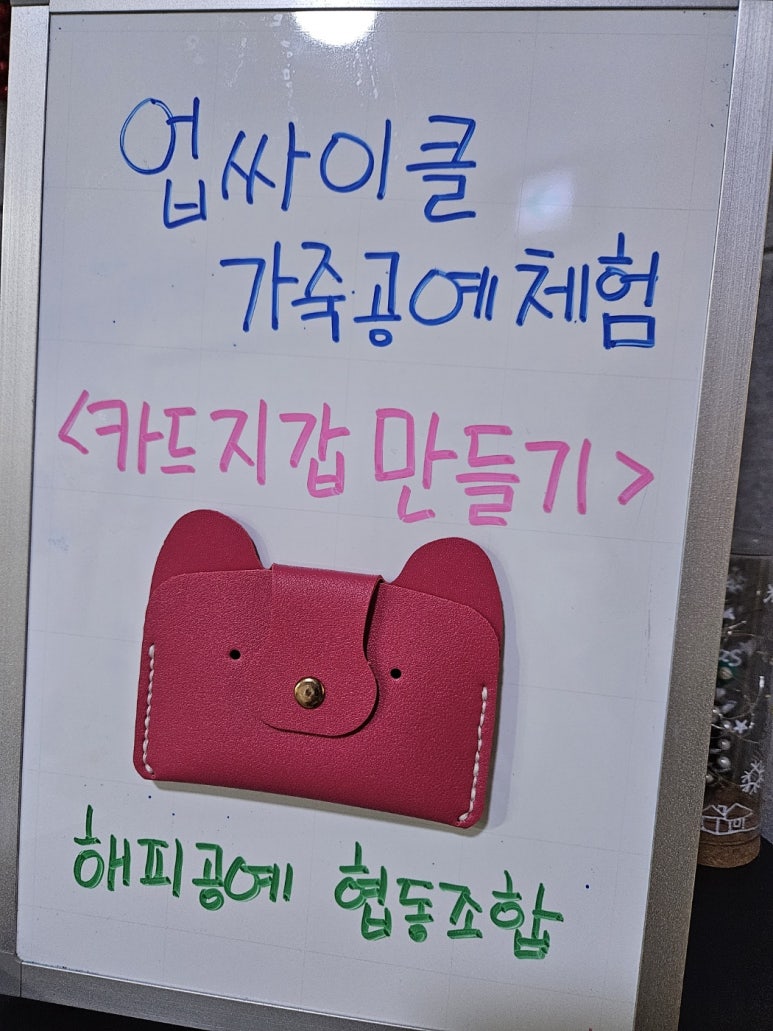 업싸이클
가죽공예체험
<카드지갑 만들기>
해피공예 협동조합